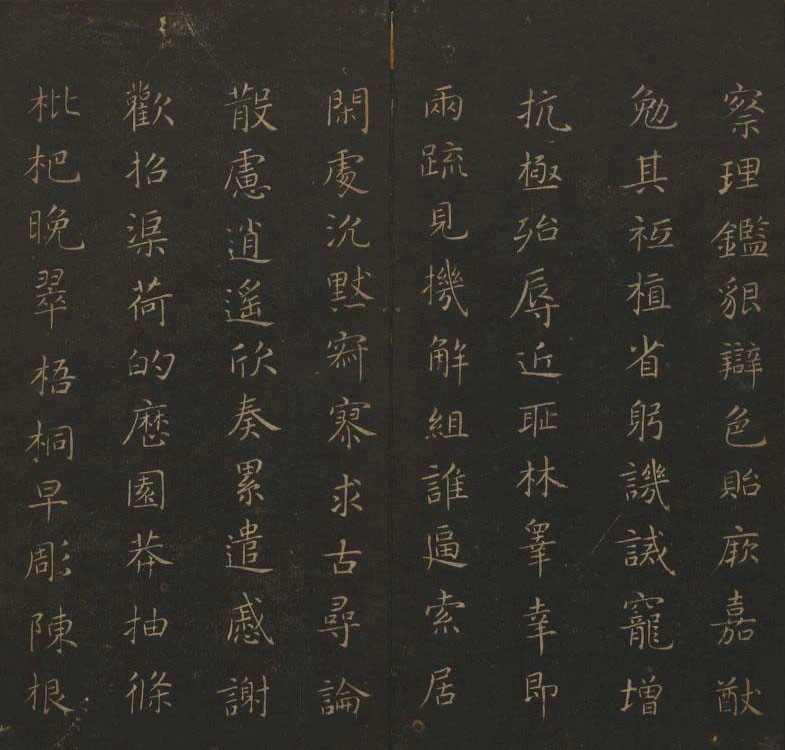 察理鑑貌辯色貽厥嘉猷
勉其祗植省躬譏誡寵增
抗極殆辱近恥林睾幸即
兩疏見機解組誰逼索居
閑處沉默寂寥求古尋論
散慮逍遙欣奏累遣慼謝
歡招渠荷的歷園莽抽條
枇杷晚翠梧桐早彫陳根